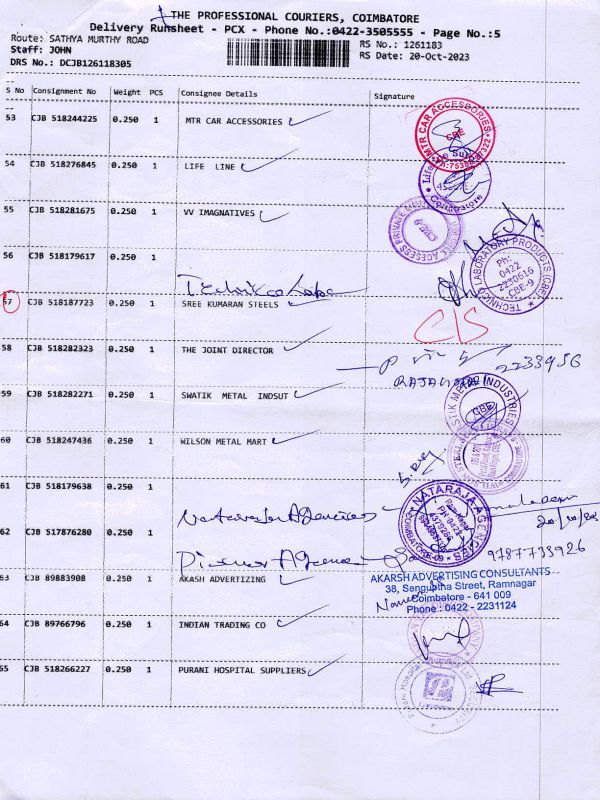 THE PROFESSIONAL COURIERS, COIMBATORE
Delivery Runsheet - PCX - Phone No.:0422-3505555 - Page No.:5
Route: SATHYA MURTHY ROAD
RS No.: 1261183
Staff: JOHN
RS Date: 20-Oct-2023
DRS No.: DCJB126118305
S No Consignment No Weight PCS Consignee Details Signature
53 CJB 518244225 0.250 1 MTR CAR ACCESSORIES
MTR CAR ACCESSORIES
CBE
54 CJB 518276845 0.250 1 LIFE LINE
Coimbatore
55 CJB 518281675 0.250 1 VV IMAGNATIVES
56 CJB 518179617 0.250 1
TECHNICO LABORATORY PRODUCTS (CBE)
Ph:
0422
2230616
CBE-9
57 CJB 518187723 0.250 1 SREE KUMARAN STEELS
58 CJB 518282323 0.250 1 THE JOINT DIRECTOR
2233956
59 CJB 518282271 0.250 1 SWATIK METAL INDSUT
METAL INDUSTRIES
CBE
60 CJB 518247436 0.250 1 WILSON METAL MART
61 CJB 518179638 0.250 1
Nataraja Agencies
NATARAJA AGENCIES
COIMBATORE-09
62 CJB 517876280 0.250 1
9787733926
63 CJB 89883908 0.250 1 AKASH ADVERTIZING
AKARSH ADVERTISING CONSULTANTS
38, Senguptha Street, Ramnagar
Coimbatore - 641 009
Phone : 0422 - 2231124
64 CJB 89766796 0.250 1 INDIAN TRADING CO
65 CJB 518266227 0.250 1 PURANI HOSPITAL SUPPLIERS